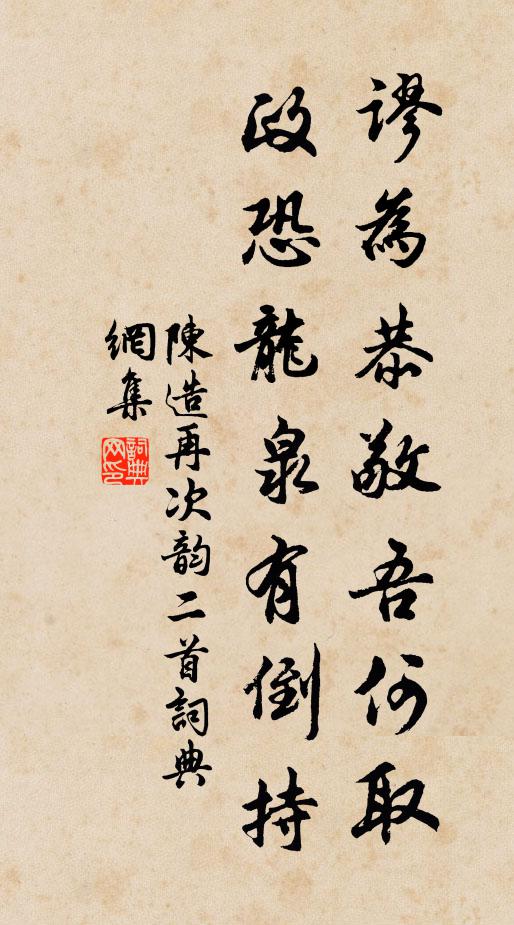 謬為恭敬吾何取
政恐龍泉有倒持
陳造再次韵二首詞典
網集
詞典网印